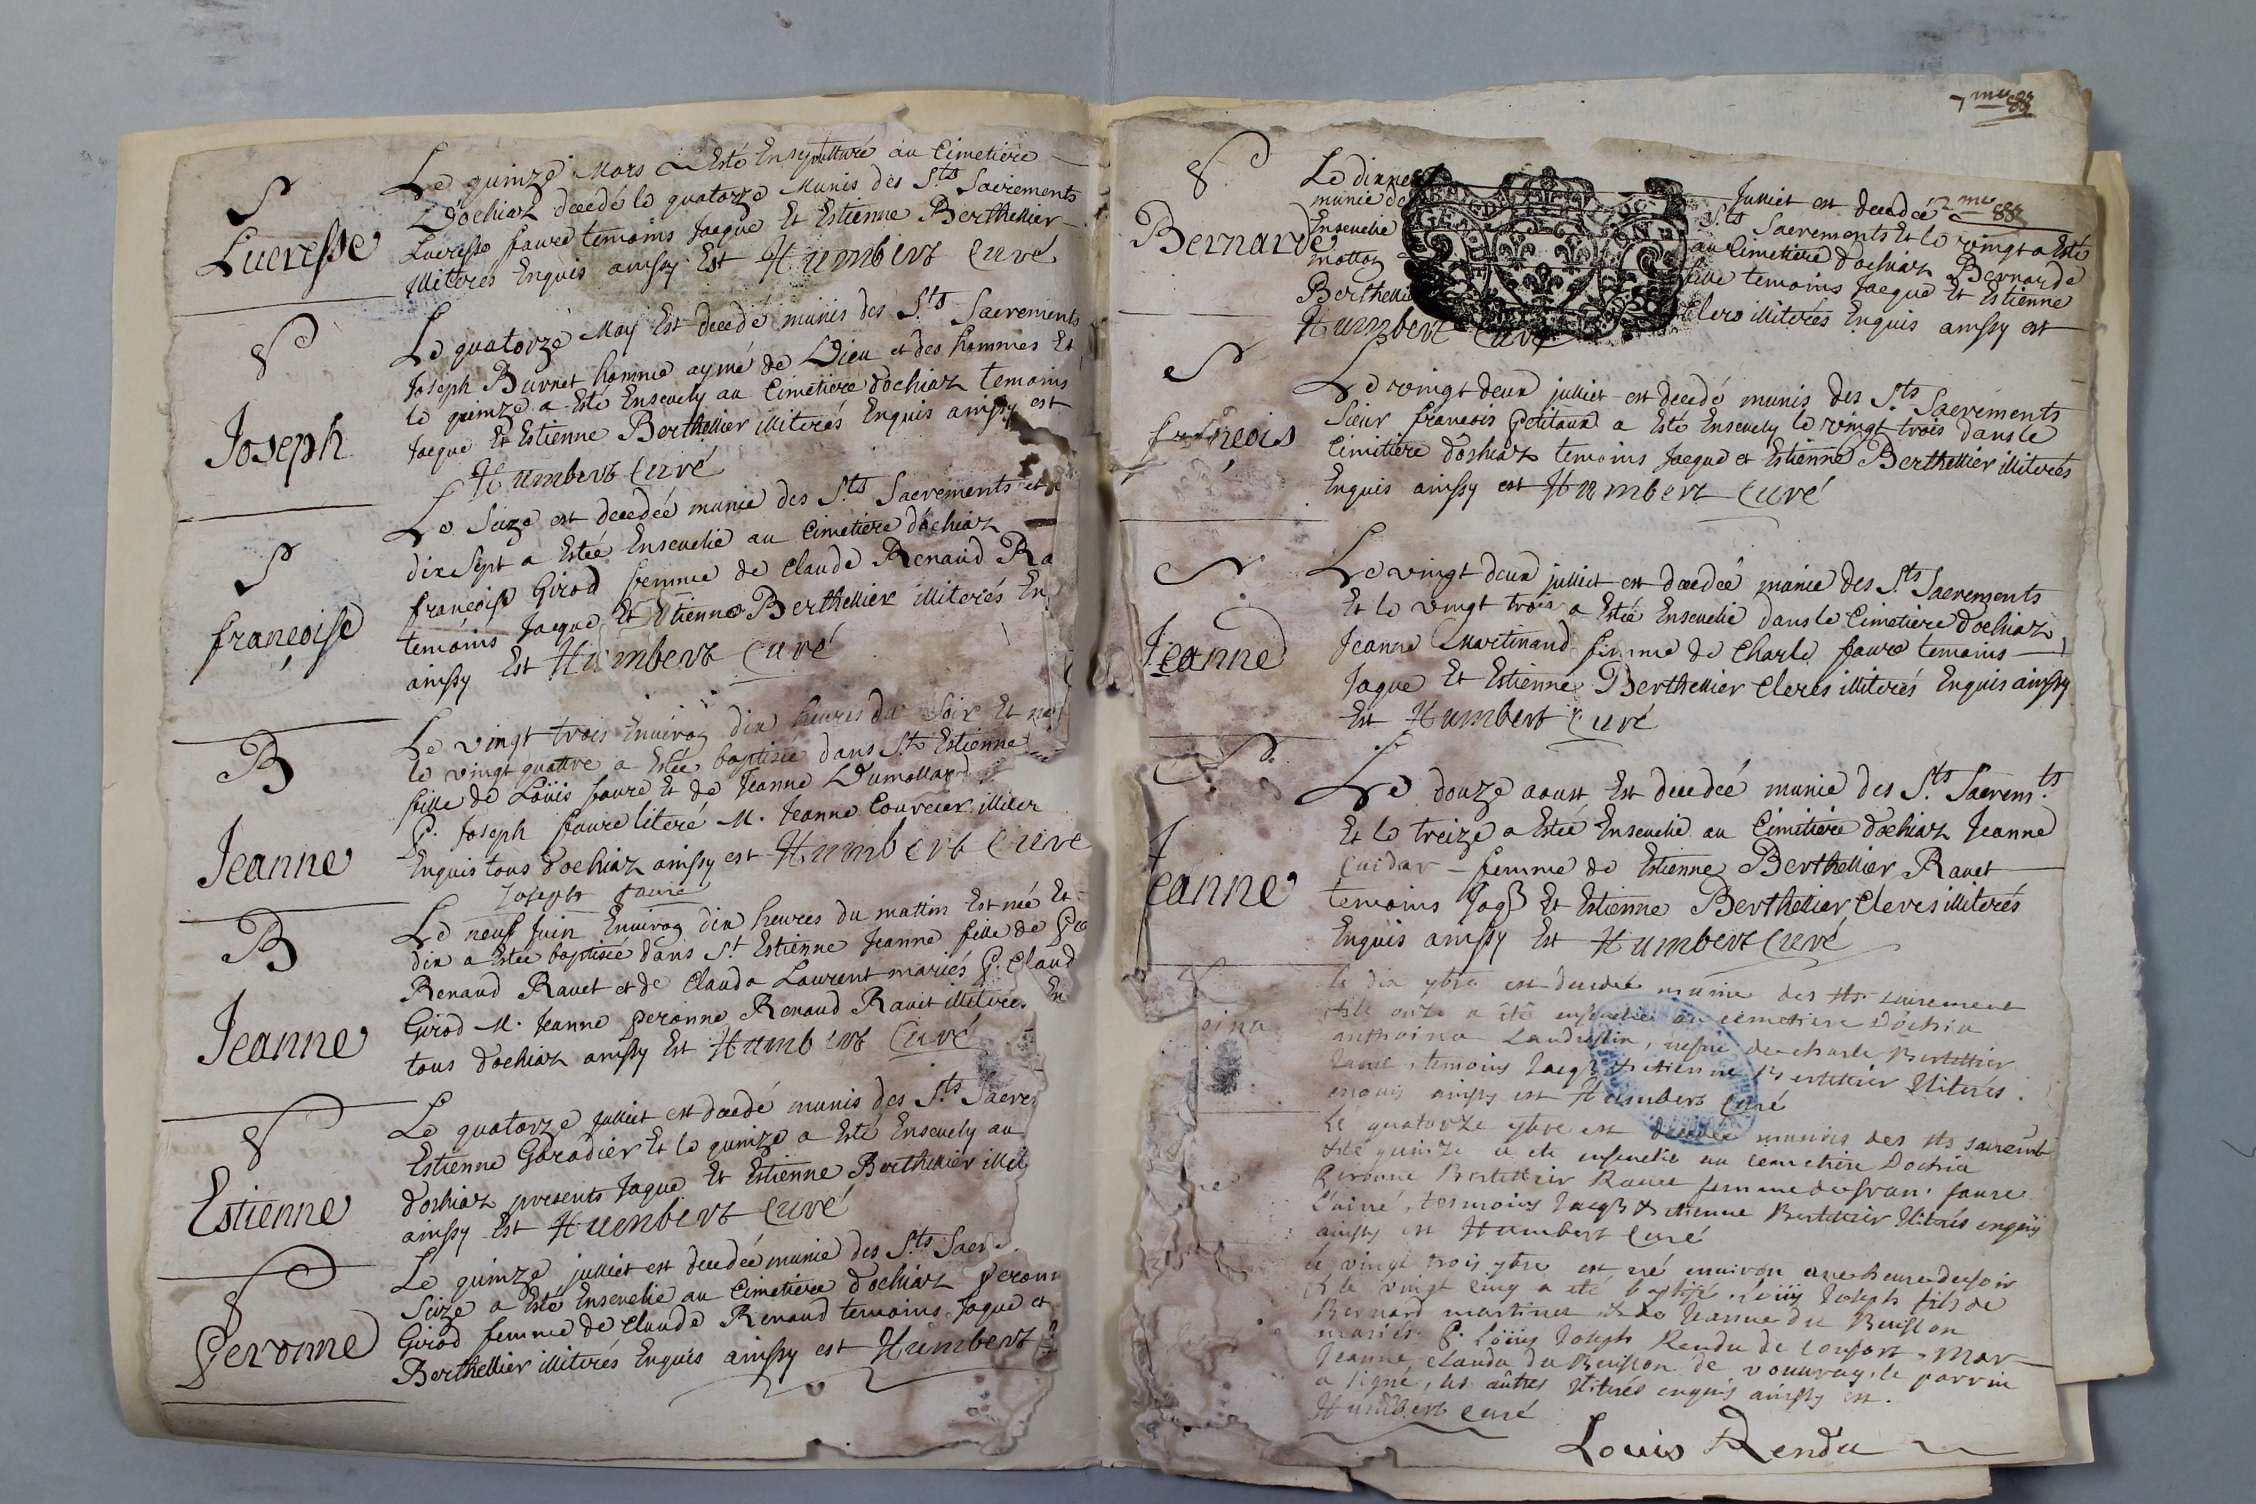 S
Lucresse
Le quinze Mars a Esté Ensepulturé au Cimetiere
Dochiaz decedé le quatorze Munis des S.ts Sacrements
Lucresse faure temoins Jacque Et Estienne Berthellier
illiterés Enquis ainssy Est Humbert Curé
S
Joseph
Le quatorze May Est decedé munis des S.ts Sacrements
Joseph Burnet homme aymé de Dieu et des hommes Et
le quinze a Esté Ensevely au Cimetiere dochiaz temoins
Jacque Et Estienne Berthellier illiterés Enquis ainssy est
Humbert Curé
S
françoise
Le Seize est decedée munie des S.ts Sacrements et
dix Sept a Estée Ensevelie au Cimetiere dochiaz
françoise Girod femme de Claude Renaud Ra
temoins Jacque Et Estienne Berthellier illiterés En
ainssy Est Humbert Curé
B
Jeanne
Le vingt trois Environ dix heures du Soir Et né
le vingt quattre a Estée baptisée dans S.t Estienne
fille de Loüis faure Et de Jeanne Dumollard
P. Joseph faure literé M. Jeanne Courcier illiter
Enquis tous dochiaz ainssy est Humbert Curé
Joseph faure
B
Jeanne
Le neuf Juin Environ dix heures du mattin Est née Et
dix a Estée baptisée dans S.t Estienne Jeanne fille de
Renaud Ravet et de Clauda Laurent mariés P. Claud
Girod M. Jeanne peronne Renaud Ravet illiterés En
tous dochiaz ainssy Est Humbert Curé
S
Estienne
Le quatorze Julliet est decedé munis des S.ts Sacre
Estienne Goradier Et le quinze a Esté Ensevely au
dochiaz presents Jaque Et Estienne Berthellier illit
ainssy Est Humbert Curé
S
Peronne
Le quinze julliet est decedée munie des S.ts Sacr
Seize a Esté Ensevelie au Cimetiere dochiaz peronn
Girod femme de Claude Renaud temoins Jaque et
Berthellier illiterés Enquis ainssy est Humbert
7me 88
S
Bernarde
Le dixne Julliet est decedée 2me 88
munie de S.ts Sacrements Et le vingt a Esté
Ensevelie au Cimetiere dochiaz Bernarde
mottoz fille temoins Jacque Et Estienne
Berthellie Clers illiterés Enquis ainssy est
Humbert Curé
S
françois
Le vingt deux julliet est decedé munis des S.ts Sacrements
Sieur françois Petitaux a Esté Ensevely le vingt trois dans le
Cimitiere dochiaz temoins Jacque et Estienne Berthellier illiterés
Enquis ainssy est Humbert Curé
S
Jeanne
Le vingt deux julliet est decedée munie des S.ts Sacrements
Et le vingt trois a Estée Ensevelie dans le Cimetiere dochiaz
Jeanne Martinand femme de Charle faure temoins
Jaque Et Estienne Berthellier Clercs illiterés Enquis ainssy
Est Humbert Curé
S
Jeanne
Le douze aoust Est decedée munie des S.ts Sacrem.ts
Et le treize a Estée Ensevelie au Cimitiere dochiaz Jeanne
Cuidar femme de Estienne Berthellier Ravet
temoins Jaq Et Estienne Berthellier Clercs illiterés
Enquis ainssy Est Humbert Curé
oina
le dix 7bre est decedée munie des sts sairement
et le onze a êté ensevelie au cemetiere Dochia
anthoina Landraslin, vefve de charle Bertettier
Ravet, temoins Jacq & etienne Bertettier Illiterés
enquis ainssy est Humbert Curé
ne
Le quatorze 7bre est decedée munies des sts sairemt
et le quinze a ete ensevelie au cemetiere Dochia
Peronne Bertettier Ravet femme de fran. faure
L'ainé, tesmoins Jacq & etienne Bertettier Illiterés enquis
ainssy est Humbert Curé
le vingt trois 7bre est né environ une heure du soir
& le vingt cinq a eté baptisé, Loüis Joseph fils de
Bernard martinet & de Jeanne du Buisson
mariés. P. Loüis Joseph Rendu de confort, Mar
Jeanne clauda du Buisson de vouvray, le parrin
a signé, les aûtres Illiterés enquis ainssy est.
Humbert Curé
Louis Rendu